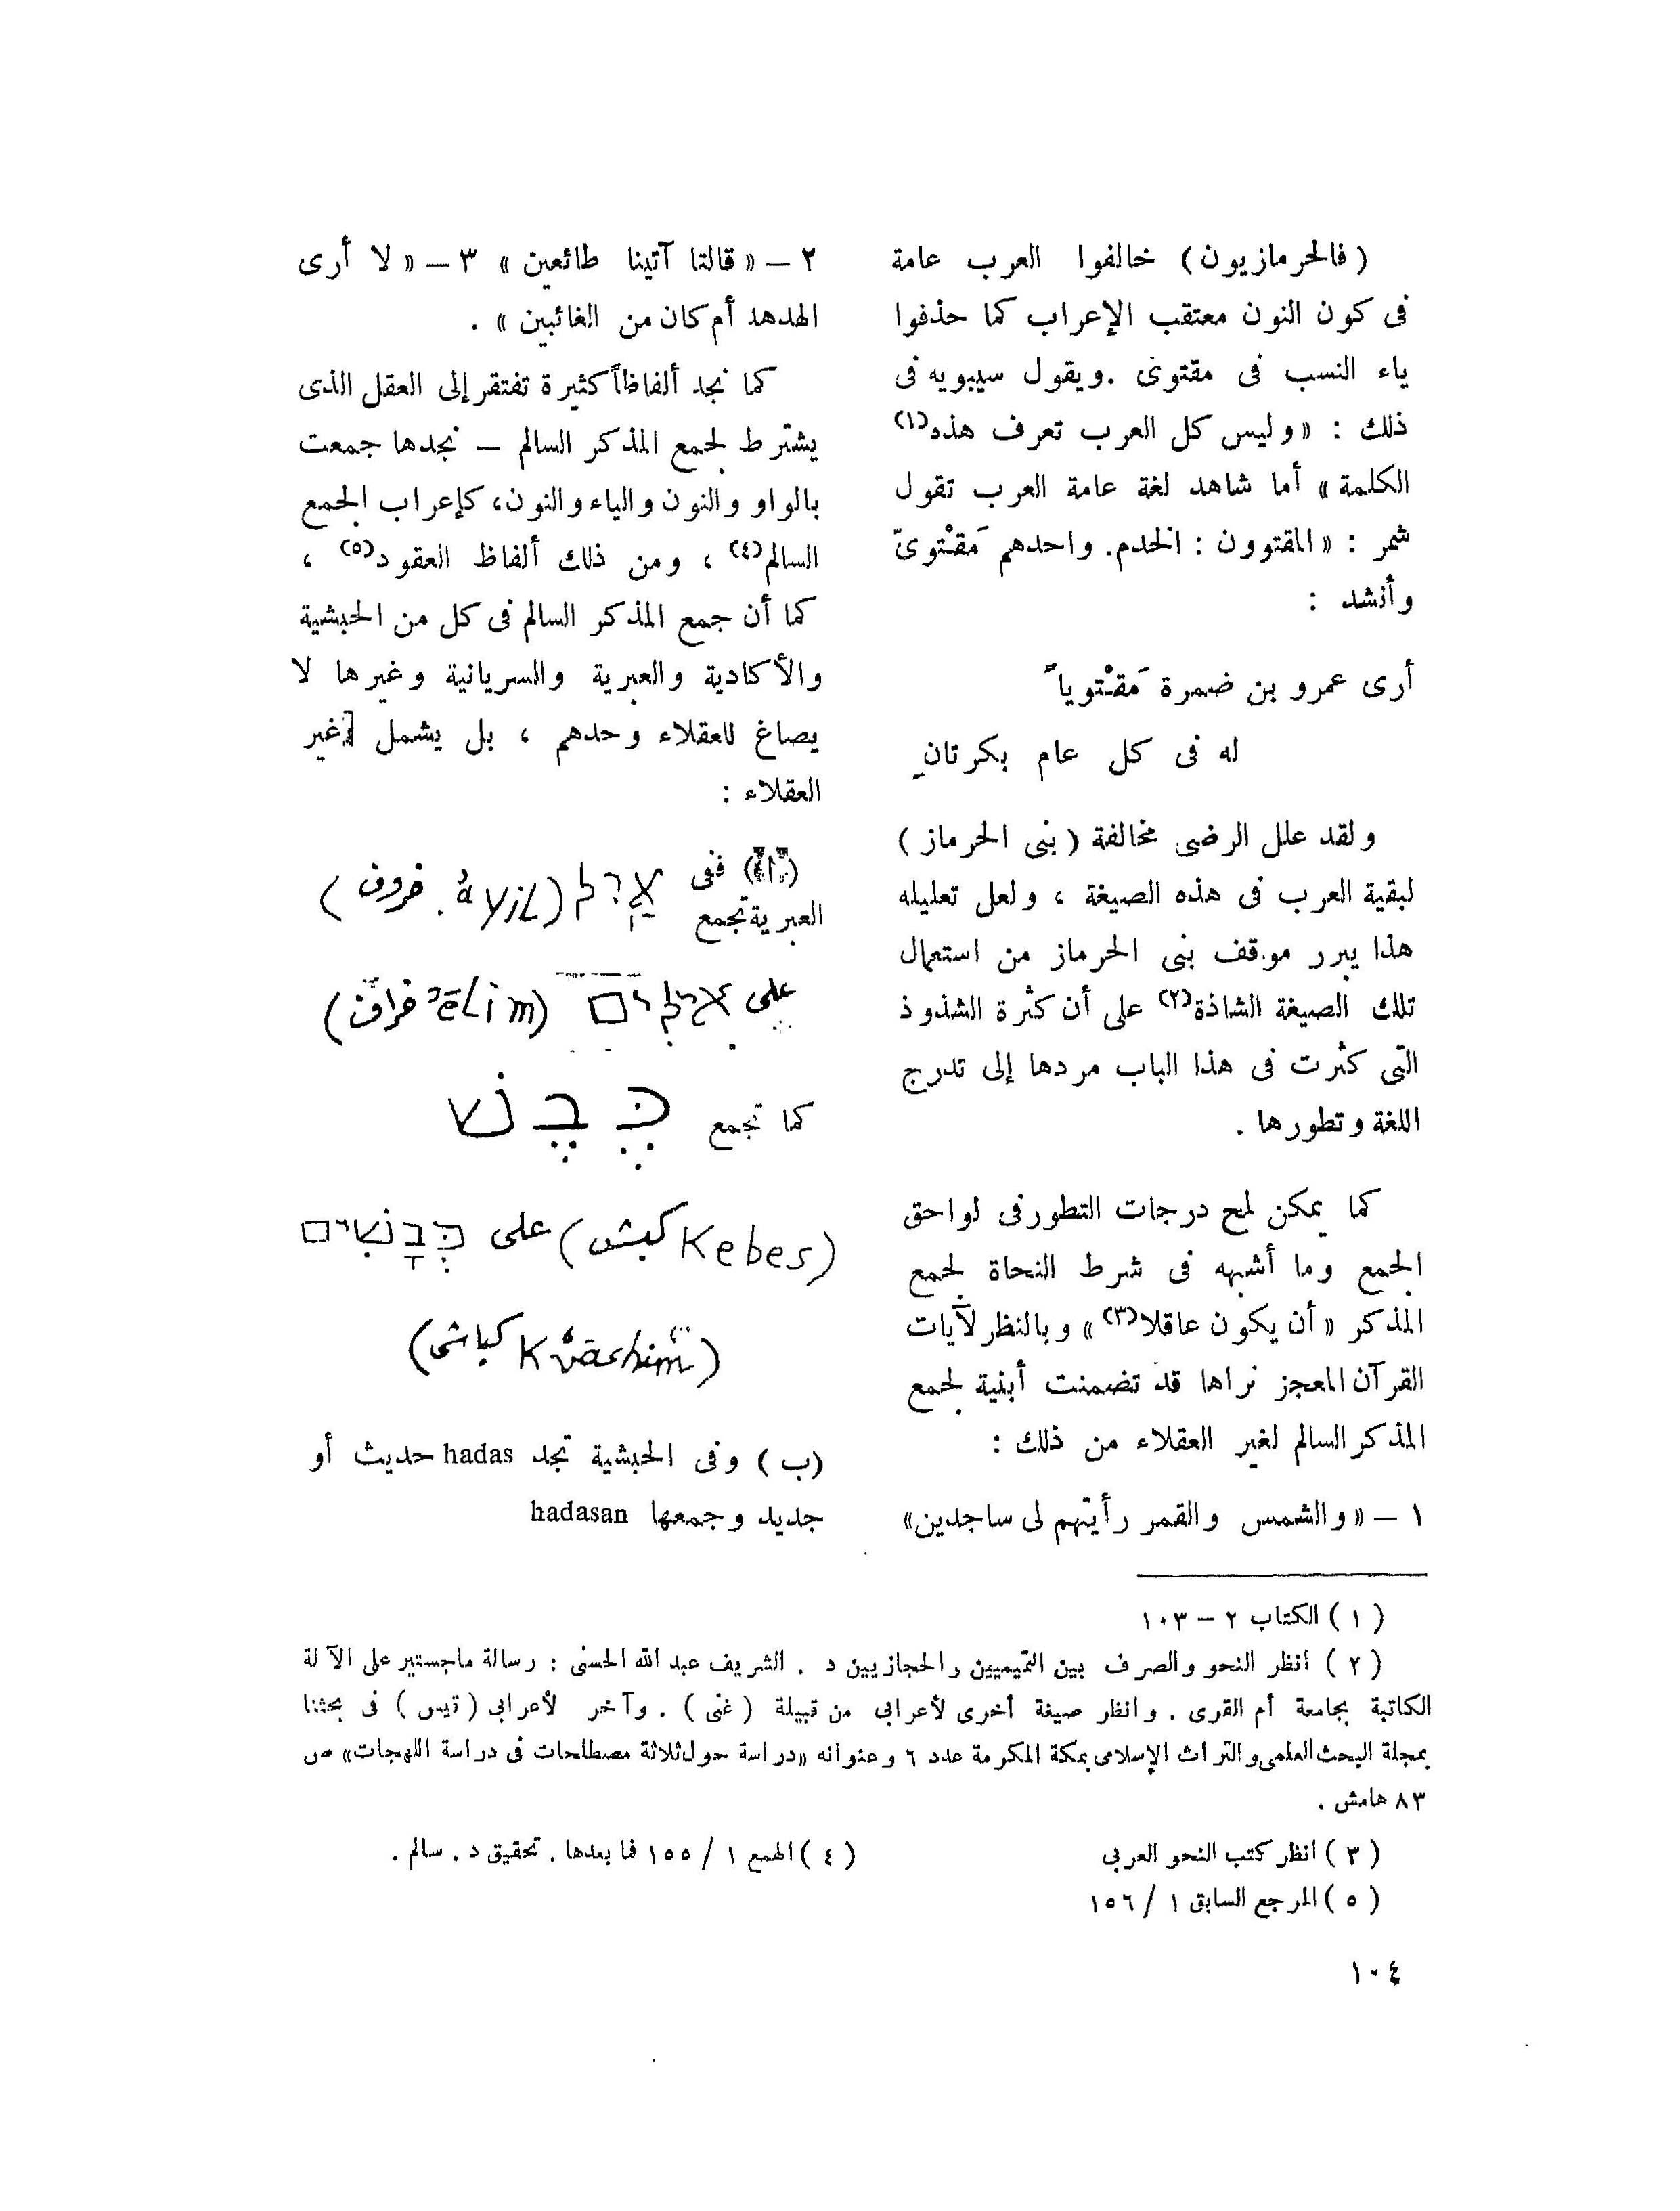 (فالحرمازيون) خالفوا العرب عامة
فى كون النون معتقب الإعراب كما حذفوا
ياء النسب فى مقتوى . ويقول سيبويه فى
ذلك : « وليس كل العرب تعرف هذه(١)
الكلمة » أما شاهد لغة عامة العرب تقول
شمر : « المقتوون : الخدم . واحدهم مَقْتوىّ
وأنشد :
أرى عمرو بن ضمرة مَقْتوياً
له فى كل عام بكرتانِ
ولقد علل الرضى مخالفة ( بنى الحرماز )
لبقية العرب فى هذه الصيغة ، ولعل تعليله
هذا يبرر موقف بنى الحرماز من استعمال
تلك الصيغة الشاذة(٢) على أن كثرة الشذوذ
التى كثرت فى هذا الباب مردها إلى تدرج
اللغة وتطورها .
كما يمكن لمح درجات التطور فى لواحق
الجمع وما أشبهه فى شرط النحاة لجمع
المذكر « أن يكون عاقلا(٣) » وبالنظر لآيات
القرآن المعجز نراها قد تضمنت أبنية لجمع
المذكر السالم لغير العقلاء من ذلك :
١ – « والشمس والقمر رأيتهم لى ساجدين »
٢ – « قالتا آتينا طائعين » ٣ – « لا أرى
الهدهد أم كان من الغائبين » .
كما نجد ألفاظاً كثيرة تفتقر إلى العقل الذى
يشترط لجمع المذكر السالم – نجدها جمعت
بالواو والنون والياء والنون، كإعراب الجمع
السالم(٤) ، ومن ذلك ألفاظ العقود(٥) ،
كما أن جمع المذكر السالم فى كل من الحبشية
والأكادية والعبرية والسريانية وغيرها لا
يصاغ للعقلاء وحدهم ، بل يشمل غير
العقلاء :
(ا) ففى العبرية تجمع איל (ayil. خروف)
على אילים (ēlim خراف)
كما تجمع כבש
(Kebes كبش) على כבשים
(Kvāshim كباش)
(ب) وفى الحبشية تجد hadas حديث أو
جديد وجمعها hadasan
(١) الكتاب ٢ – ١٠٣
(٢) انظر النحو والصرف بين التميميين والحجازيين د . الشريف عبد الله الحسنى : رسالة ماجستير على الآلة
الكاتبة بجامعة أم القرى . وانظر صيغة أخرى لأعرابى من قبيلة ( غنى ) . وآخر لأعرابى ( قيس ) فى بحثنا
بمجلة البحث العلمى والتراث الإسلامى بمكة المكرمة عدد ٦ وعنوانه « دراسة حول ثلاثة مصطلحات فى دراسة اللهجات » ص
٨٣ هامش .
(٣) انظر كتب النحو العربى
(٤) الهمع ١ / ١٥٥ فما بعدها . تحقيق د . سالم .
(٥) المرجع السابق ١ / ١٥٦
١٠٤